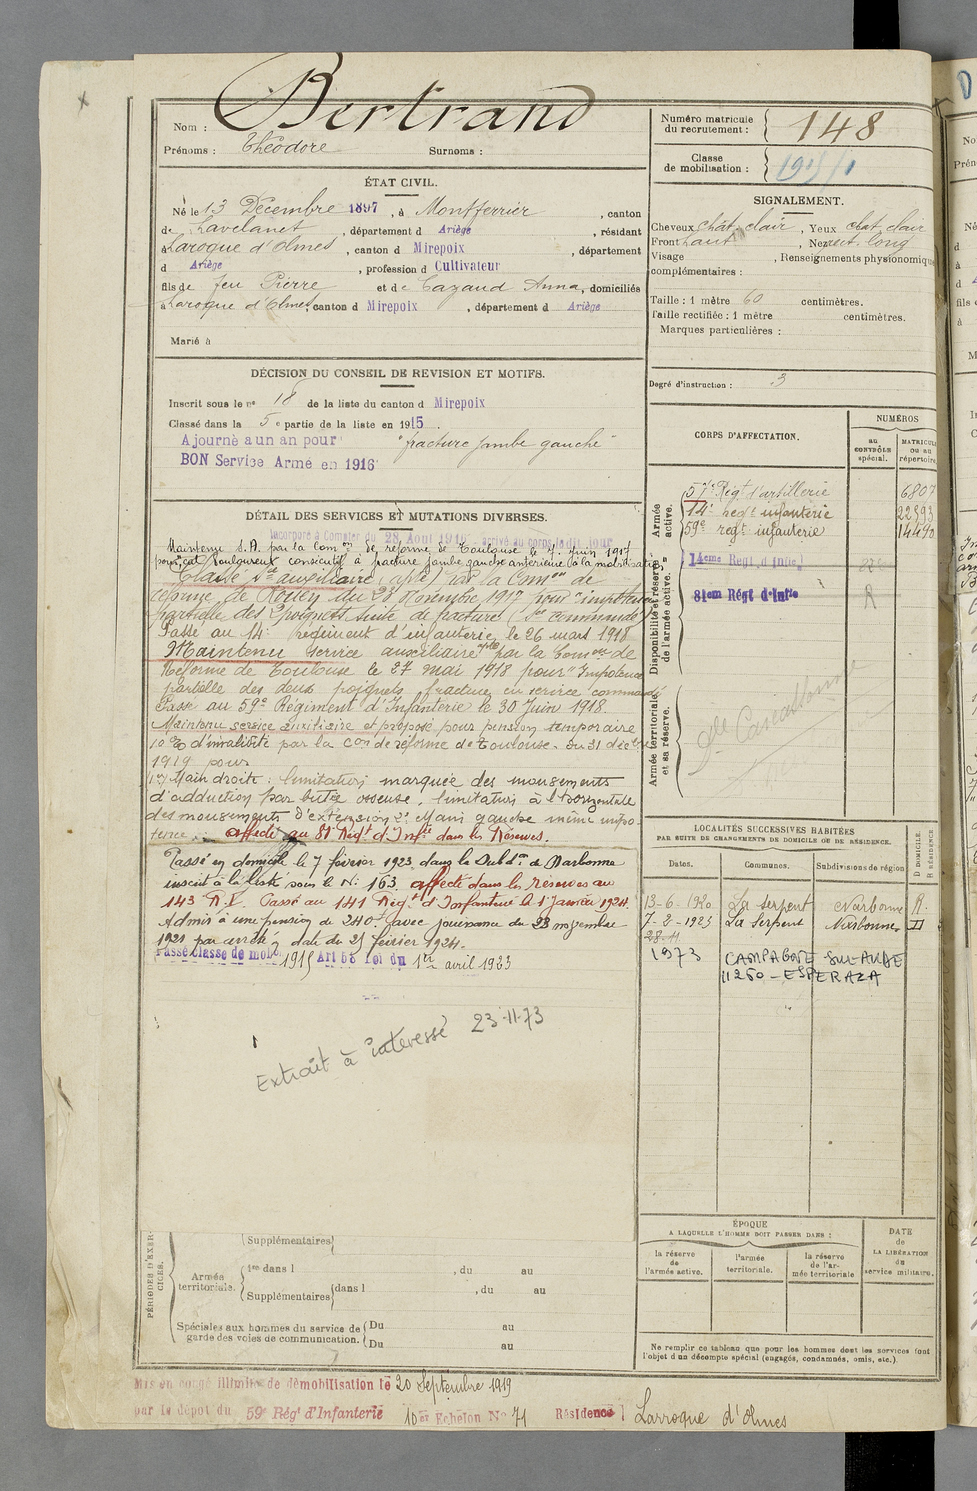 Nom : Bertrand
Prénoms : Théodore Surnoms :
Numéro matricule du recrutement : 148
Classe de mobilisation :
ÉTAT CIVIL.
Né le 13 Décembre 1897, à Montferrier, canton
de Lavelanet, département d Ariège, résidant
à Laroque d'Olmes, canton d Mirepoix, département
d Ariège, profession d Cultivateur
fils de feu Pierre et de Cazaud Anna, domiciliés
à Laroque d'Olmes, canton d Mirepoix, département d Ariège
Marié à
SIGNALEMENT.
Cheveux chât. clair, Yeux chat. clair
Front haut, Nez rect. long
Visage , Renseignements physionomiques
complémentaires :
Taille : 1 mètre 60 centimètres.
Taille rectifiée : 1 mètre centimètres.
Marques particulières :
Degré d'instruction : 3
DÉCISION DU CONSEIL DE REVISION ET MOTIFS.
Inscrit sous le no 18 de la liste du canton d Mirepoix
Classé dans la 5e partie de la liste en 1915.
Ajourné a un an pour "fracture jambe gauche"
BON Service Armé en 1916
CORPS D'AFFECTATION.
NUMÉROS
au CONTRÔLE spécial.
MATRICULE ou au répertoire.
Armée active.
57e Régt d'artillerie 6807
14e regt infanterie 22393
59e regt infanterie 14490
Disponibilité et réserve de l'armée active.
14eme Regt d infie
81em Régt d'Infie R
Armée territoriale et sa réserve.
DÉTAIL DES SERVICES ET MUTATIONS DIVERSES.
Incorporé à compter du 28 Aout 1916, arrivé au corps le dit jour
Maintenu S.A. par la Comon de réforme de Toulouse le 4 Juin 1917
pour cal douloureux consécutif à fracture jambe gauche antérieure à la mobilisation
Classé Sce auxiliaire (apte) par la Comon de
réforme de du 28 Novembre 1917 pour "impotence
partielle des 2 poignets suite de fracture (Sce commandé)
Passé au 14e Régiment d'infanterie le 26 mars 1918
Maintenu service auxiliaire par la Comon de
Réforme de Toulouse le 27 mai 1918 pour "Impotence
partielle des deux poignets fracture en service commandé
Passé au 59e Régiment d'Infanterie le 30 Juin 1918.
Maintenu service auxiliaire et proposé pour pension temporaire
10 % d'invalidité par la Con de réforme de Toulouse du 31 décbre
1919 pour
1°) Main droite : limitation marquée des mouvements
d'adduction par butée osseuse, limitation à l'horizontale
des mouvements d'extension 2° Main gauche même impo-
tence. affecté au 81 Régt d'Infie dans les Réserves.
Passé en domicile le 7 février 1923 dans la Subdon de Narbonne
inscrit à la liste sous le No 163. affecté dans les réserves au
143 R.I. Passé au 141 Régt d'Infanterie le 1 Janvier 1924.
Admis à une pension de 240f avec jouissance du 23 novembre
1921 par arrêté date du 25 février 1924.
Passé classe de mobo 1915 Art 58 loi du 1er avril 1923
Extrait à intéressé 23-11-73
LOCALITÉS SUCCESSIVES HABITÉES
PAR SUITE DE CHANGEMENTS DE DOMICILE OU DE RÉSIDENCE.
Dates. Communes. Subdivisions de région D DOMICILE. R RÉSIDENCE
13-6-1920 La serpent Narbonne R.
7-2-1923 La Serpent Narbonne D
28-11
1973 CAMPAGNE-SUR-AUDE
11260-ESPERAZA
ÉPOQUE
A LAQUELLE L'HOMME DOIT PASSER DANS :
la réserve de l'armée active.
l'armée territoriale.
la réserve de l'armée territoriale
DATE de LA LIBÉRATION du service militaire.
Ne remplir ce tableau que pour les hommes dont les services font
l'objet d'un décompte spécial (engagés, condamnés, omis, etc.).
PÉRIODES D'EXERCICES.
Supplémentaires
Armée territoriale.
1re dans l , du au
Supplémentaires dans l , du au
Spéciales aux hommes du service de garde des voies de communication.
Du au
Du au
Mis en congé illimité de démobilisation le 20 Septembre 1919
par le dépot du 59e Régt d'Infanterie 10er Echelon No 71 Résidence Larroque d'Olmes